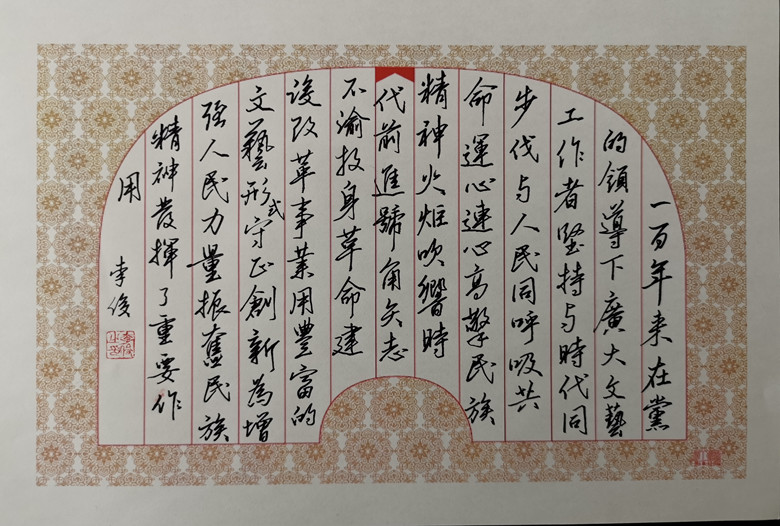 一百年来在黨
的領導下廣大文藝
工作者堅持与時代同
步伐与人民同呼吸共
命運心連心高擎民族
精神火炬吹響時
代前進號角矢志
不渝投身革命建
設改革事業用豐富的
文藝形式守正創新為增
強人民力量振奮民族
精神發揮了重要作
用 李俊